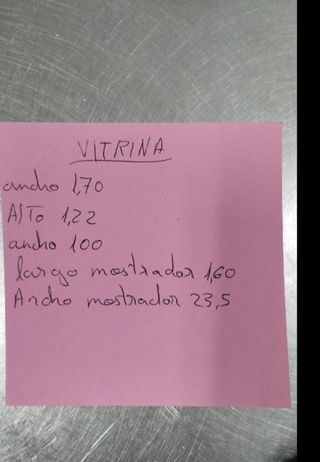 VITRINA
ancho 1,70
Alto 1,22
ancho 100
largo mostrador 1,60
Ancho mostrador 23,5